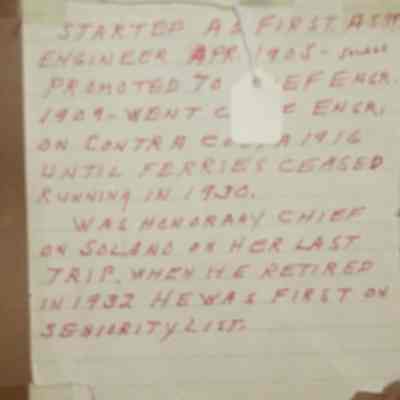 STARTED AS FIRST ASST
ENGINEER APR. 1905-
PROMOTED TO EF ENGR.
1909-WENT C ENGR.
ON CONTRA CO A 1916
UNTIL FERRIES CEASED
RUNNING IN 1930.
WAS HONORARY CHIEF
ON SOLANO ON HER LAST
TRIP. WHEN HE RETIRED
IN 1932 HE WAS FIRST ON
SENIORITY LIST.